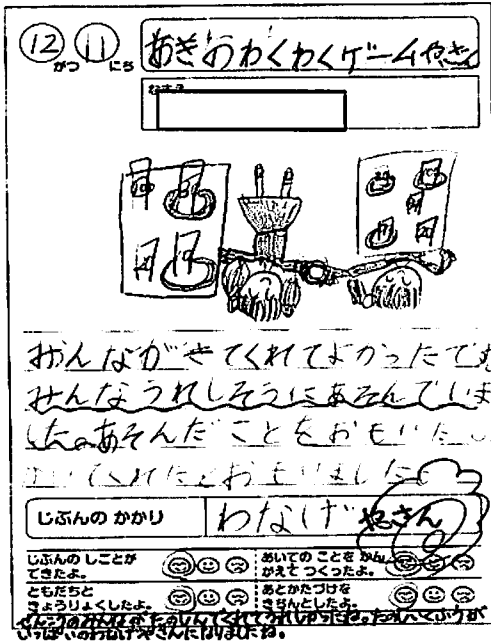 12がつ 11にち
あきのわくわくゲームやさん
なまえ
みんながきてくれてよかったです
みんなうれしそうにあそんでいま
した。あそんだことをおもいだし
くれたとおもいました。
じぶんの かかり わなげやさん
じぶんの しごとが できたよ。
あいての ことを かんがえて つくったよ。
ともだちと きょうりょくしたよ。
あとかたづけを きちんとしたよ。
たのしんでくれてうれしかったね。たのしいくふうが
いっぱいのわなげやさんになりましたね。